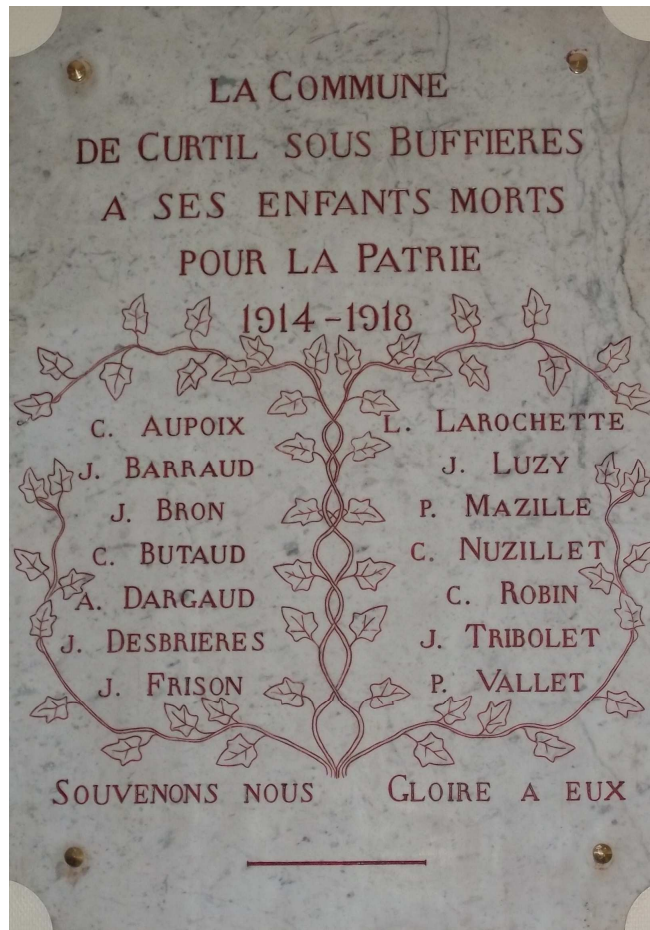 LA COMMUNE
DE CURTIL SOUS BUFFIERES
A SES ENFANTS MORTS
POUR LA PATRIE
1914-1918
C. AUPOIX
J. BARRAUD
J. BRON
C. BUTAUD
A. DARGAUD
J. DESBRIERES
J. FRISON
L. LAROCHETTE
J. LUZY
P. MAZILLE
C. NUZILLET
C. ROBIN
J. TRIBOLET
P. VALLET
SOUVENONS NOUS GLOIRE A EUX